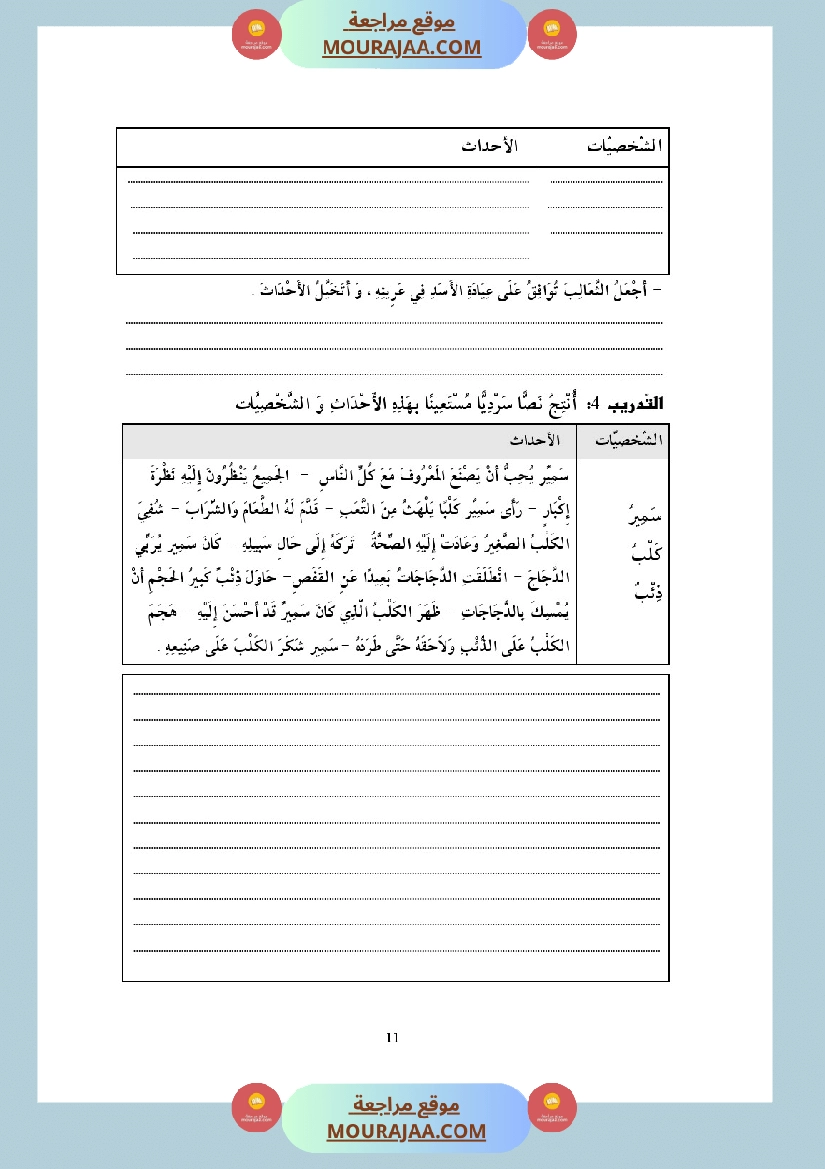 موقع مراجعة
MOURAJAA.COM
الشّخصيّات الأحداث
- أَجْعَلُ الثَّعَالِبَ تُوَافِقُ عَلَى عِيَادَةِ الأَسَدِ فِي عَرِينِهِ ، وَ أَتَخَيَّلُ الأَحْدَاثَ .
التّدريب 4: أُنْتِجُ نَصًّا سَرْدِيًّا مُسْتَعِينًا بِهَذِهِ الأَحْدَاثِ وَ الشَّخْصِيَّات
الشّخصيّات الأحداث
سَمِيرُ
كَلْبُ
ذِئْبٌ
سَمِيِّر يُحِبُّ أَنْ يَصْنَعَ المَعْرُوفَ مَعَ كُلِّ النَّاسِ - الجَمِيعُ يَنْظُرُونَ إِلَيْهِ نَظْرَةَ
إِكْبَارٍ - رَأَى سَمِيِّر كَلْبًا يَلْهَثُ مِنَ التَّعَبِ - قَدَّمَ لَهُ الطَّعَامَ وَالشَّرَابَ - شُفِيَ
الكَلْبُ الصَّغِيرُ وَعَادَتْ إِلَيْهِ الصِّحَّةُ تَرَكَهُ إِلَى حَالِ سَبِيلِهِ - كَانَ سَمِير يُرَبِّي
الدَّجَاجَ - انْطَلَقَتِ الدَّجَاجَاتُ بَعِيدًا عَنِ القَفَصِ- حَاوَلَ ذِئْبٌ كَبِيرُ الحَجْمِ أَنْ
يُمْسِكَ بِالدَّجَاجَاتِ - ظَهَرَ الكَلْبُ الَّذِي كَانَ سَمِيرٌ قَدْ أَحْسَنَ إِلَيْهِ - هَجَمَ
الكَلْبُ عَلَى الذِّئْبِ وَلاَحَقَهُ حَتَّى طَرَدَهُ -سَمِير شَكَرَ الكَلْبَ عَلَى صَنِيعِهِ .
11
موقع مراجعة
MOURAJAA.COM